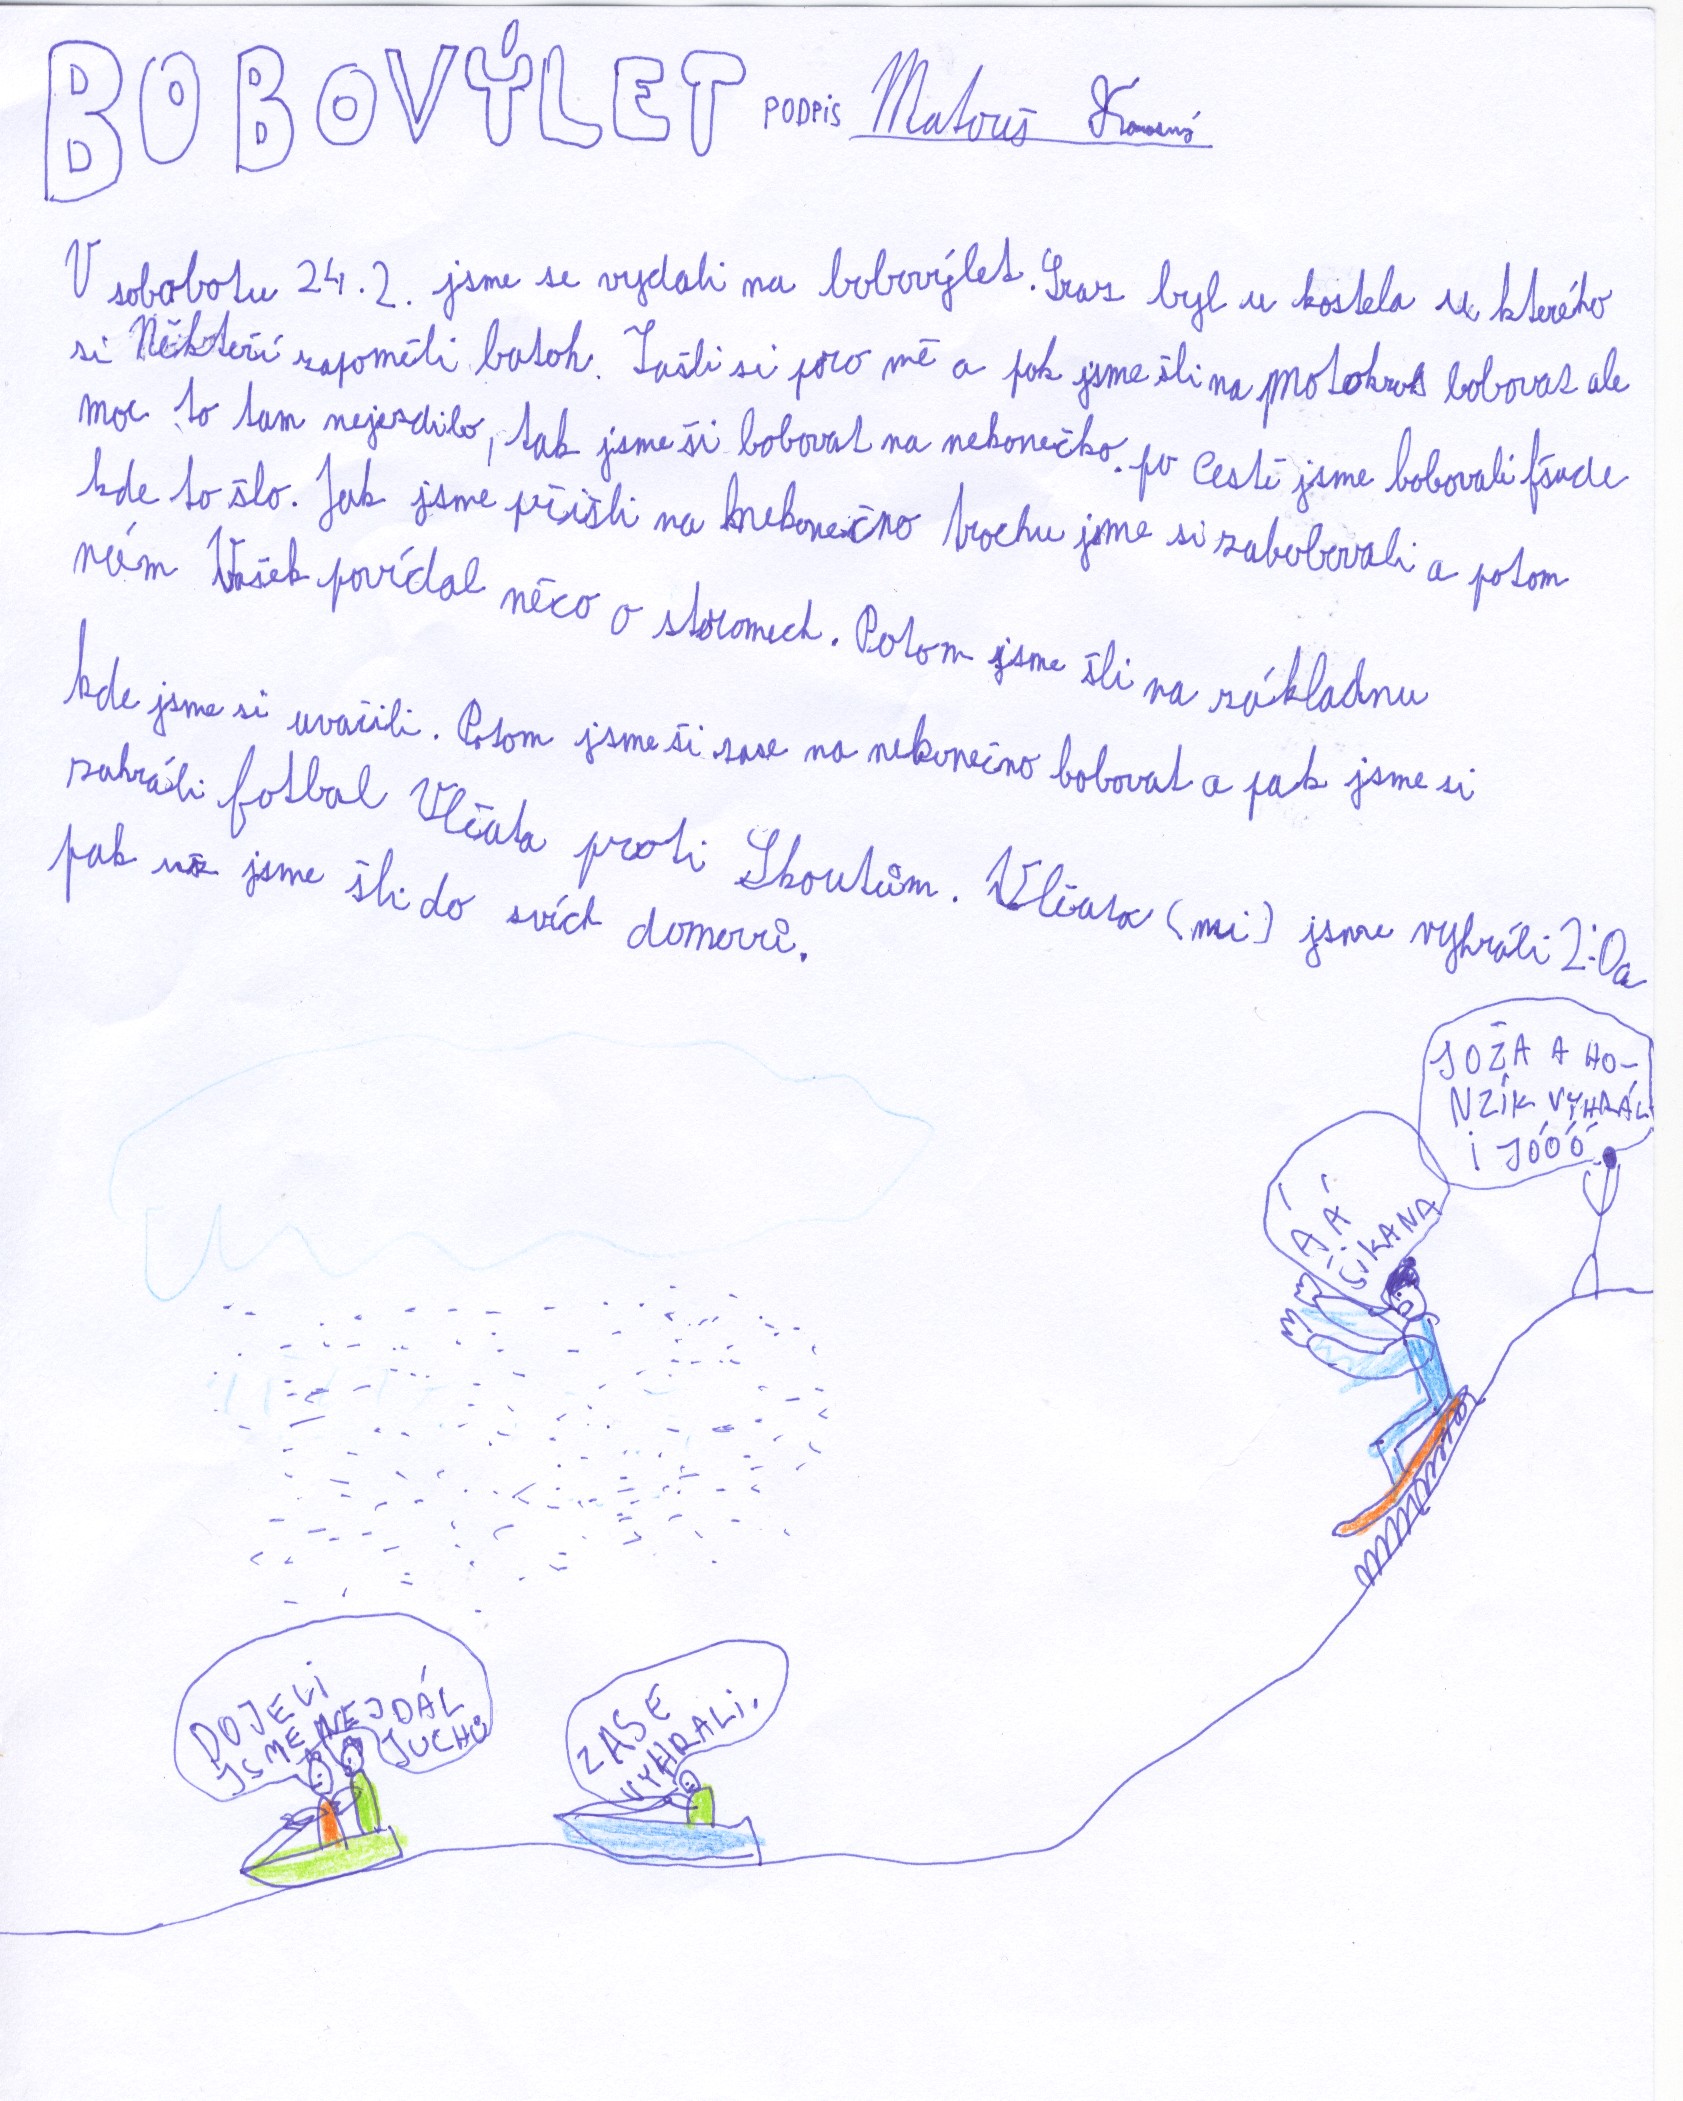 BOBOVÝLET PODPIS Matouš
V sobobotu 24.2. jsme se vydali na bobovýlet. Sraz byl u kostela u kterého
si Někteří zapoměli batoh. Zašli si pro mě a pak jsme šli na motokros bobovat ale
moc to tam nejezdilo, tak jsme ši bobovat na nekonečko. po cestě jsme bobovali fšude
kde to šlo. Jak jsme přišli na nekonečno trochu jsme si zabobovali a potom
nám Vašek povídal něco o stromech. Potom jsme šli na základnu
kde jsme si uvařili. Potom jsme ši zase na nekonečno bobovat a pak jsme si
zahráli fotbal Vlčata proti Skoutům. Vlčata (mi) jsme vyhráli 2:0 a
pak už jsme šli do svích domovů.
JOŽA A HO-
NZÍK VYHRÁL
I JÓÓÓ
Á Á
ŠIKANA
DOJELI
JSME NEJDÁL
JUCHŮ
ZASE
VYHRALI.